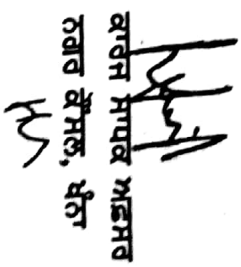 ਕਾਰਜ ਸਾਧਕ ਅਫਸਰ
ਨਗਰ ਕੌਂਸਲ, ਖੰਨਾ